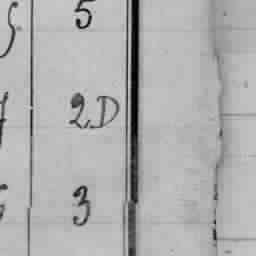 5
2D
3